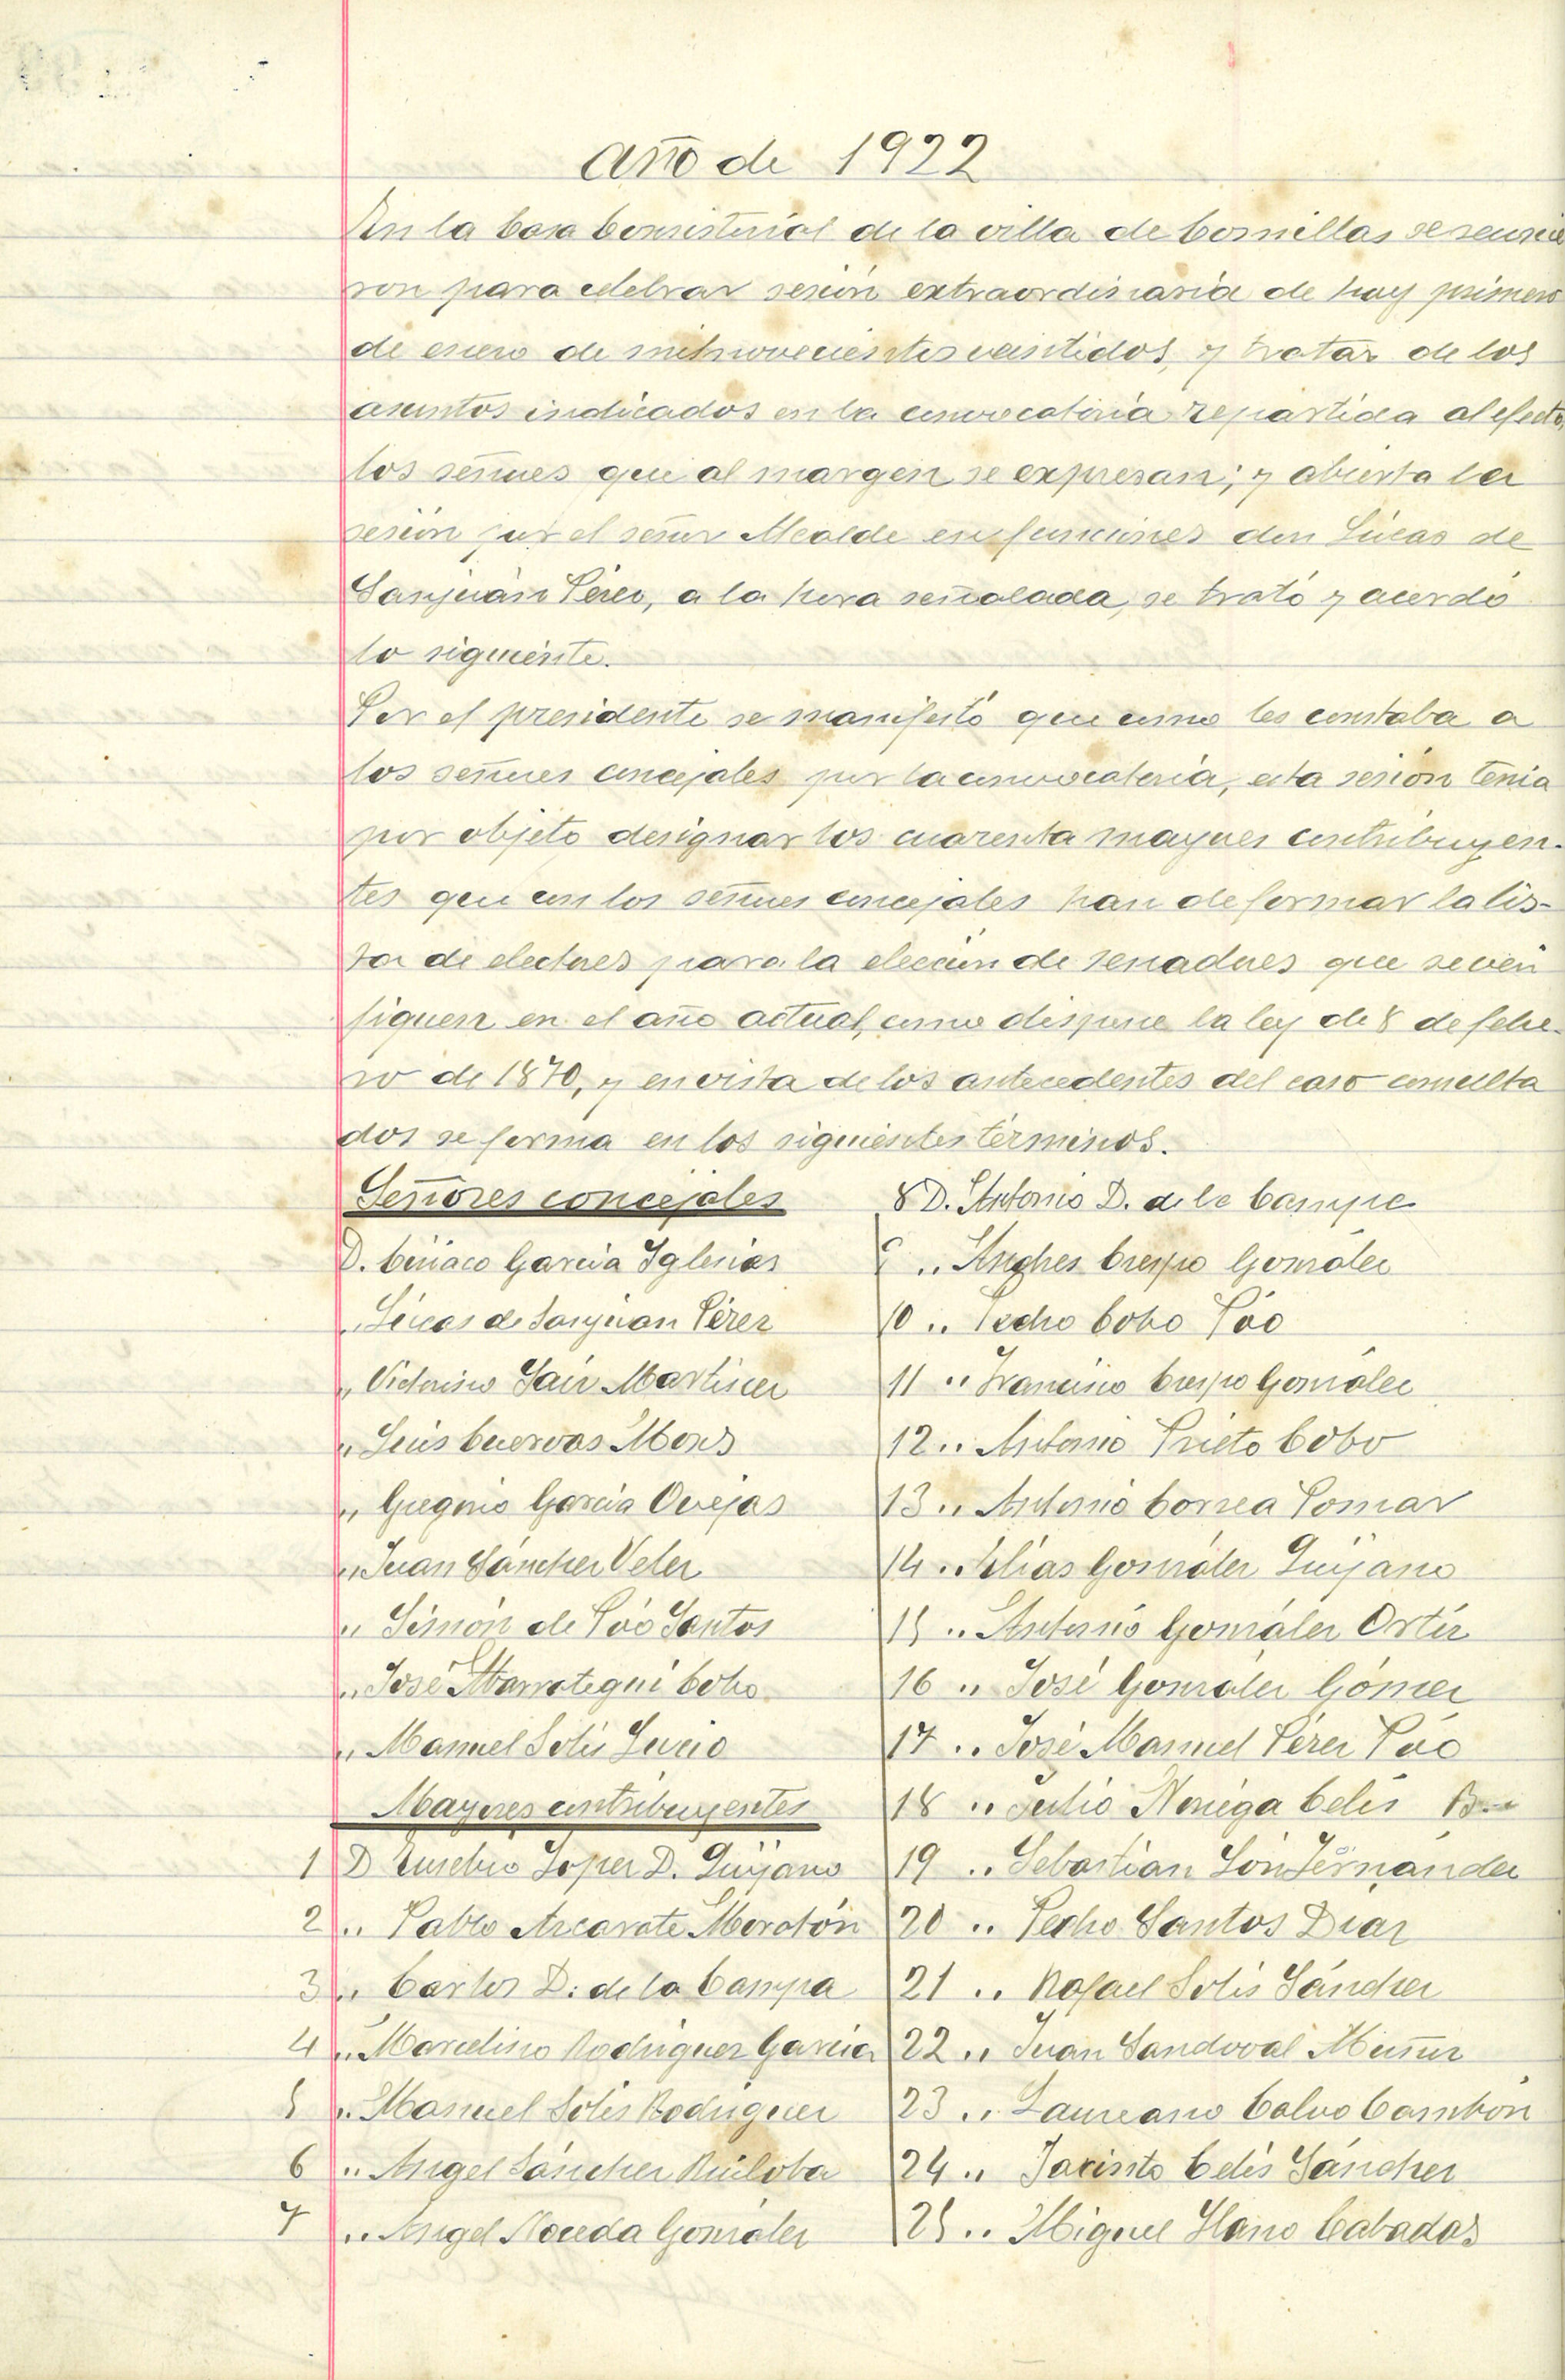 Año de 1922
En la Casa Consistorial de la villa de Comillas se reunie
ron para celebrar sesión extraordinaria de hoy primero
de enero de mil novecientos veintidos, y tratar de los
asuntos indicados en la convocatoria repartida al efecto,
los señores que al margen se expresan; y abierta la
sesión por el señor Alcalde en funciones don Lucas de
Sanjuán Pérez, a la hora señalada, se trató y acordó
lo siguiente.
Por el presidente se manifestó que como les constaba a
los señores concejales por la convocatoria, esta sesión tenia
por objeto designar los cuarenta mayores contribuyen-
tes que con los señores concejales han de formar la lis-
ta de electores para la elección de senadores que se veri
fiquen en el año actual, como dispone la ley de 8 de febre-
ro de 1870, y en vista de los antecedentes del caso consulta
dos se forma en los siguientes términos.
Señores concejales
D. Ciriaco Garcia Iglesias
" Lucas de Sanjuan Pérez
" Victorino Sainz Martinez
" Luis Cuervas Mons
" Gregorio Garcia Ovejas
" Juan Sánchez Velez
" Simón de Póo Santos
" José Marrotegui Cobo
" Manuel Solis Lucio
Mayores contribuyentes
1 D Eusebio Lopez D. Quijano
2 " Pablo Azcarate Moratón
3 " Carlos D. de la Campa
4 " Marcelino Rodriguez Garcia
5 " Manuel Solis Rodriguez
6 " Angel Sánchez Ruiloba
7 " Angel Noceda González
8 D. Antonio D. de la Campa
9 " Crespo González
10 " Pedro Cobo Póo
11 " Francisco Crespo González
12 " Antonio Prieto Cobo
13 " Antonio Correa Pomar
14 " Elias González Quijano
15 " Antonio González Ortiz
16 " José González Gómez
17 " José Manuel Pérez Póo
18 " Julio Noriega Celis
19 " Sebastian Fernández
20 " Pedro Santos Diaz
21 " Rafael Solis Sánchez
22 " Juan Sandoval Muñoz
23 " Laureano Calvo Cambón
24 " Jacinto Celis Sánchez
25 " Miguel Llano Cabadas